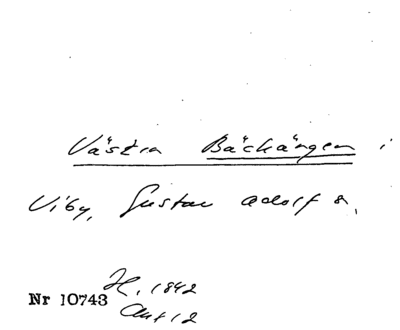 Västra Bäckängen i
Viby, Gustav Adolf s.
Nr 10743 H. 1842
Akt 12